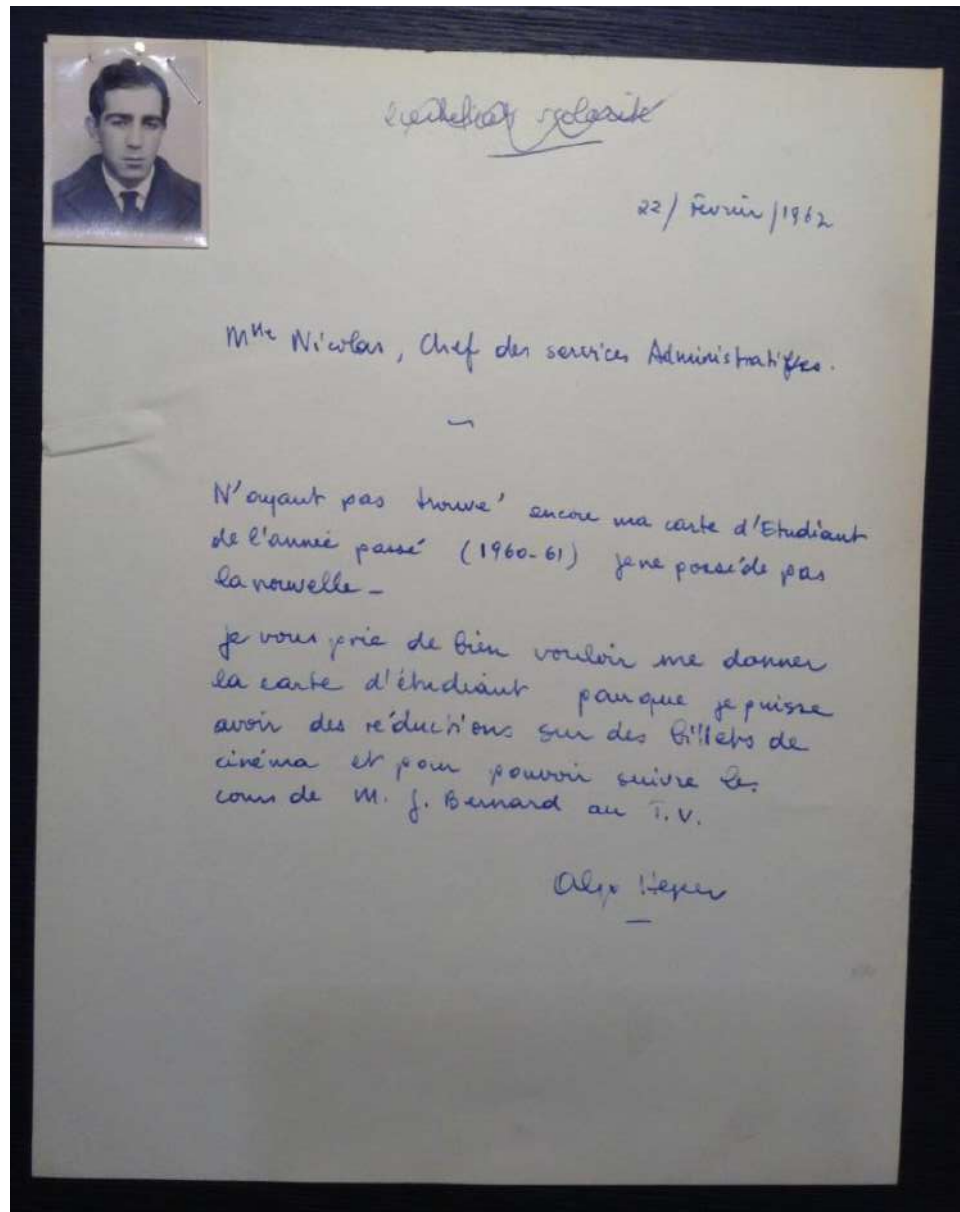 certificat scolarité
22/ Février /1962
Mlle Nicolas, Chef des services Administratifs.
N'ayant pas trouvé encore ma carte d'Etudiant
de l'année passé (1960-61) je ne possède pas
la nouvelle -
je vous prie de bien vouloir me donner
la carte d'étudiant pour que je puisse
avoir des réductions sur des billets de
cinéma et pour pouvoir suivre les
cours de M. J. Bernard au T.V.